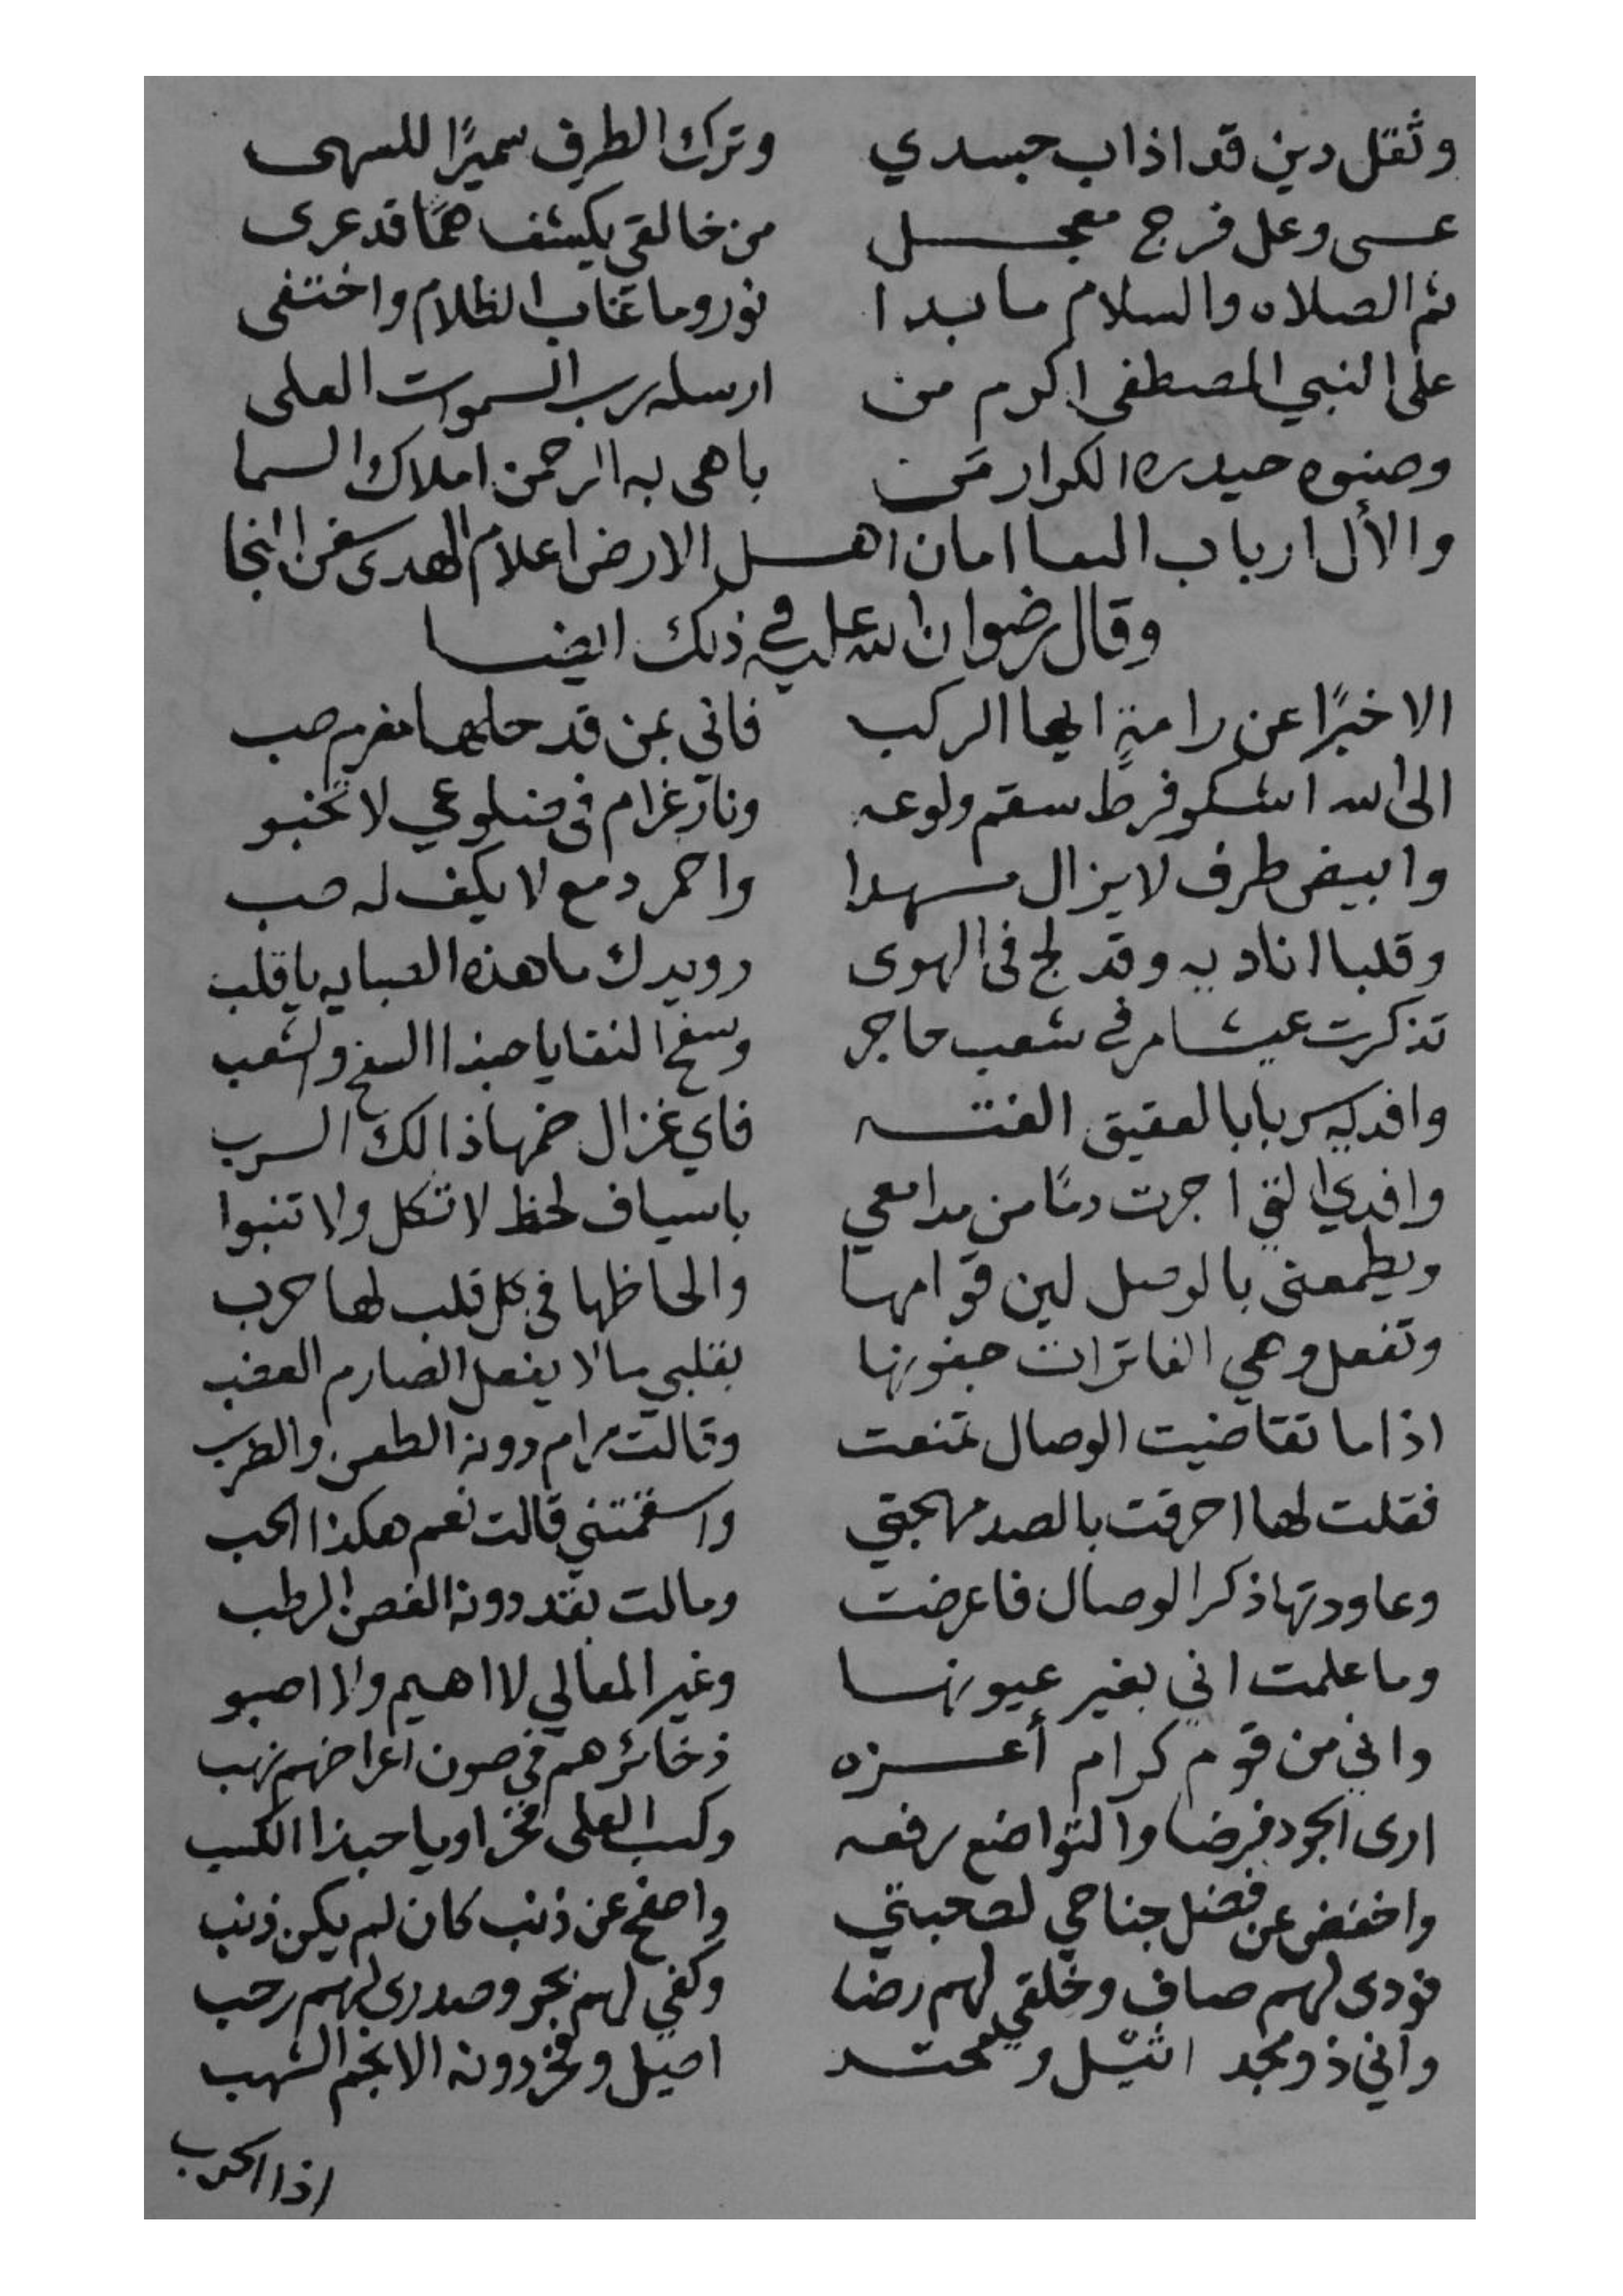 وثقل دين قد اذاب جسدي وترك الطرف سميرًا للسهى
عسى وعل فرج معجل من خالقي يكشف همًا قد عرى
ثم الصلاه والسلام ما بدا نور وما غاب الظلام واختفى
على النبي المصطفى اكرم من ارسله رب السموات العلى
وصنوه حيدره الكرار من باهى به الرحمن املاك السما
والأل ارباب امان اهل الارض اعلام الهدى سفن النجا
وقال رضوان الله عليه في ذلك ايضا
الا خبرًا عن رامةٍ ايها الركب فاني بمن قد حلها مغرم صب
الى الله اشكو فرط سقم ولوعه ونار غرام في ضلوعي لا تخبو
وابيض طرف لا يزال مسهدا واحمر دمع لا يكف له صب
وقلبا اناديه وقد لج في الهوى رويدك ما هذه الصبابه يا قلب
تذكرت عيشا مر في شعب حاجر وسفح النقا يا حبذا السفح والشعب
وافديه سربا بالعقيق الفته فاي غزال ضمها ذالك السرب
وافدي التي اجرت دمًا من مدامعي باسياف لحظ لا تكل ولا تنبوا
ويطمعني بالوصل لين قوامها والحاظها في كل قلب لها حرب
وتفعل وهي الفاترات جفونها بقلبي ما لا يفعل الصارم العضب
اذا ما تقاضيت الوصال تمنعت وقالت مرام دونه الطعن والضرب
فقلت لها احرقت بالصد مهجتي واسقمتني قالت نعم هكذا الحب
وعاودتها ذكر الوصال فاعرضت ومالت بقد دونه الغصن الرطب
وما علمت اني بغير عيونها وغير المعالي لا اهيم ولا اصبو
واني من قوم كرام أعزه ذخائرهم في صون اعراضهم نهب
ارى الجود فرضا والتواضع رفعه وكسب العلى فخرا ويا حبذا الكسب
واخفض عن فضل جناحي لصحبتي واصفح عن ذنب كان لم يكن ذنب
فودى لهم صاف وخلقي لهم رضا وكفي لهم بحر وصدرى لهم رحب
واني ذو مجد اثيل ومحتد اصيل وفخر دونه الانجم الشهب
اذا الحرب